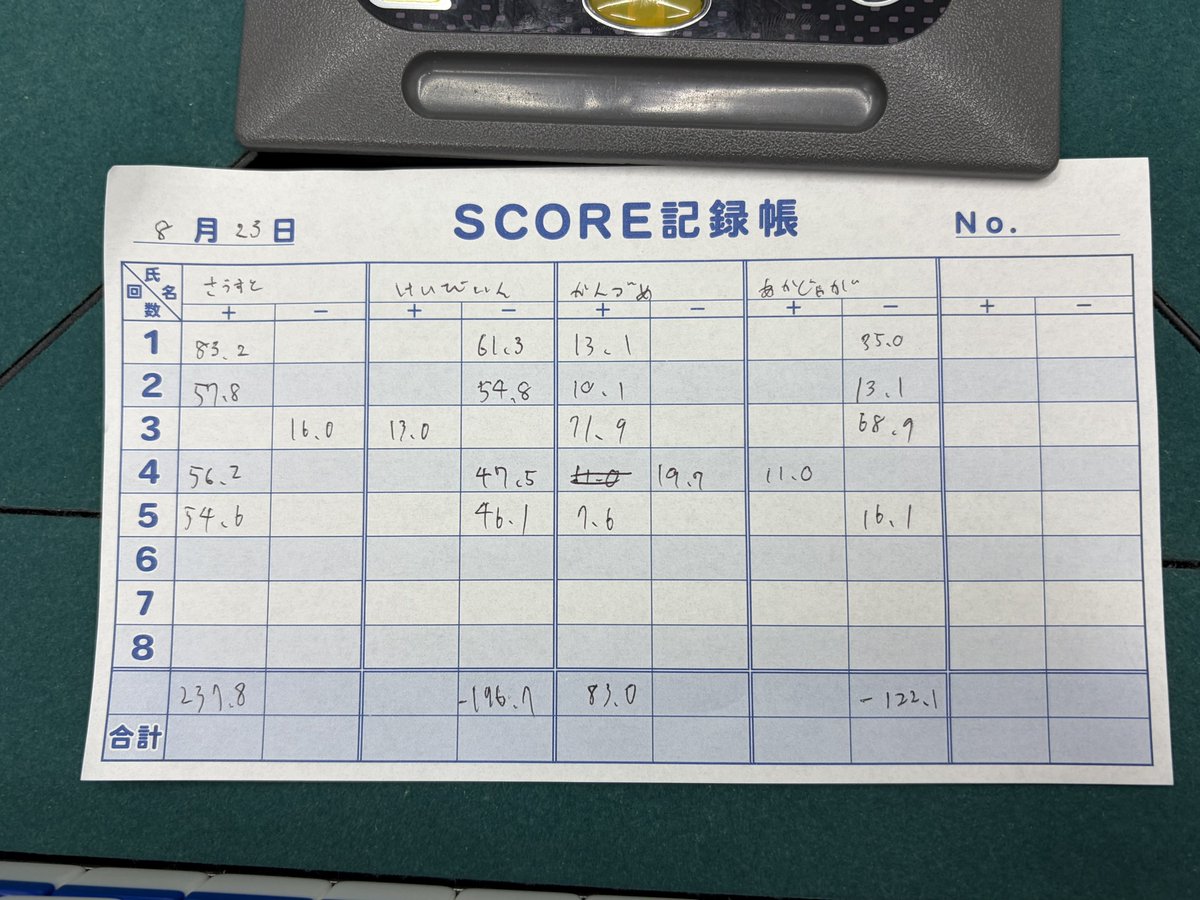 8 月 23 日
SCORE記録帳
No.
氏名
回数
さうすと けいびいん かんづめ
+ − + − + − + − + −
1 83.2 61.3 13.1 35.0
2 57.8 54.8 10.1 13.1
3 16.0 13.0 71.9 68.9
4 56.2 47.5 11.0 19.7 11.0
5 54.6 46.1 7.6 16.1
6
7
8
237.8 -196.7 83.0 -122.1
合計